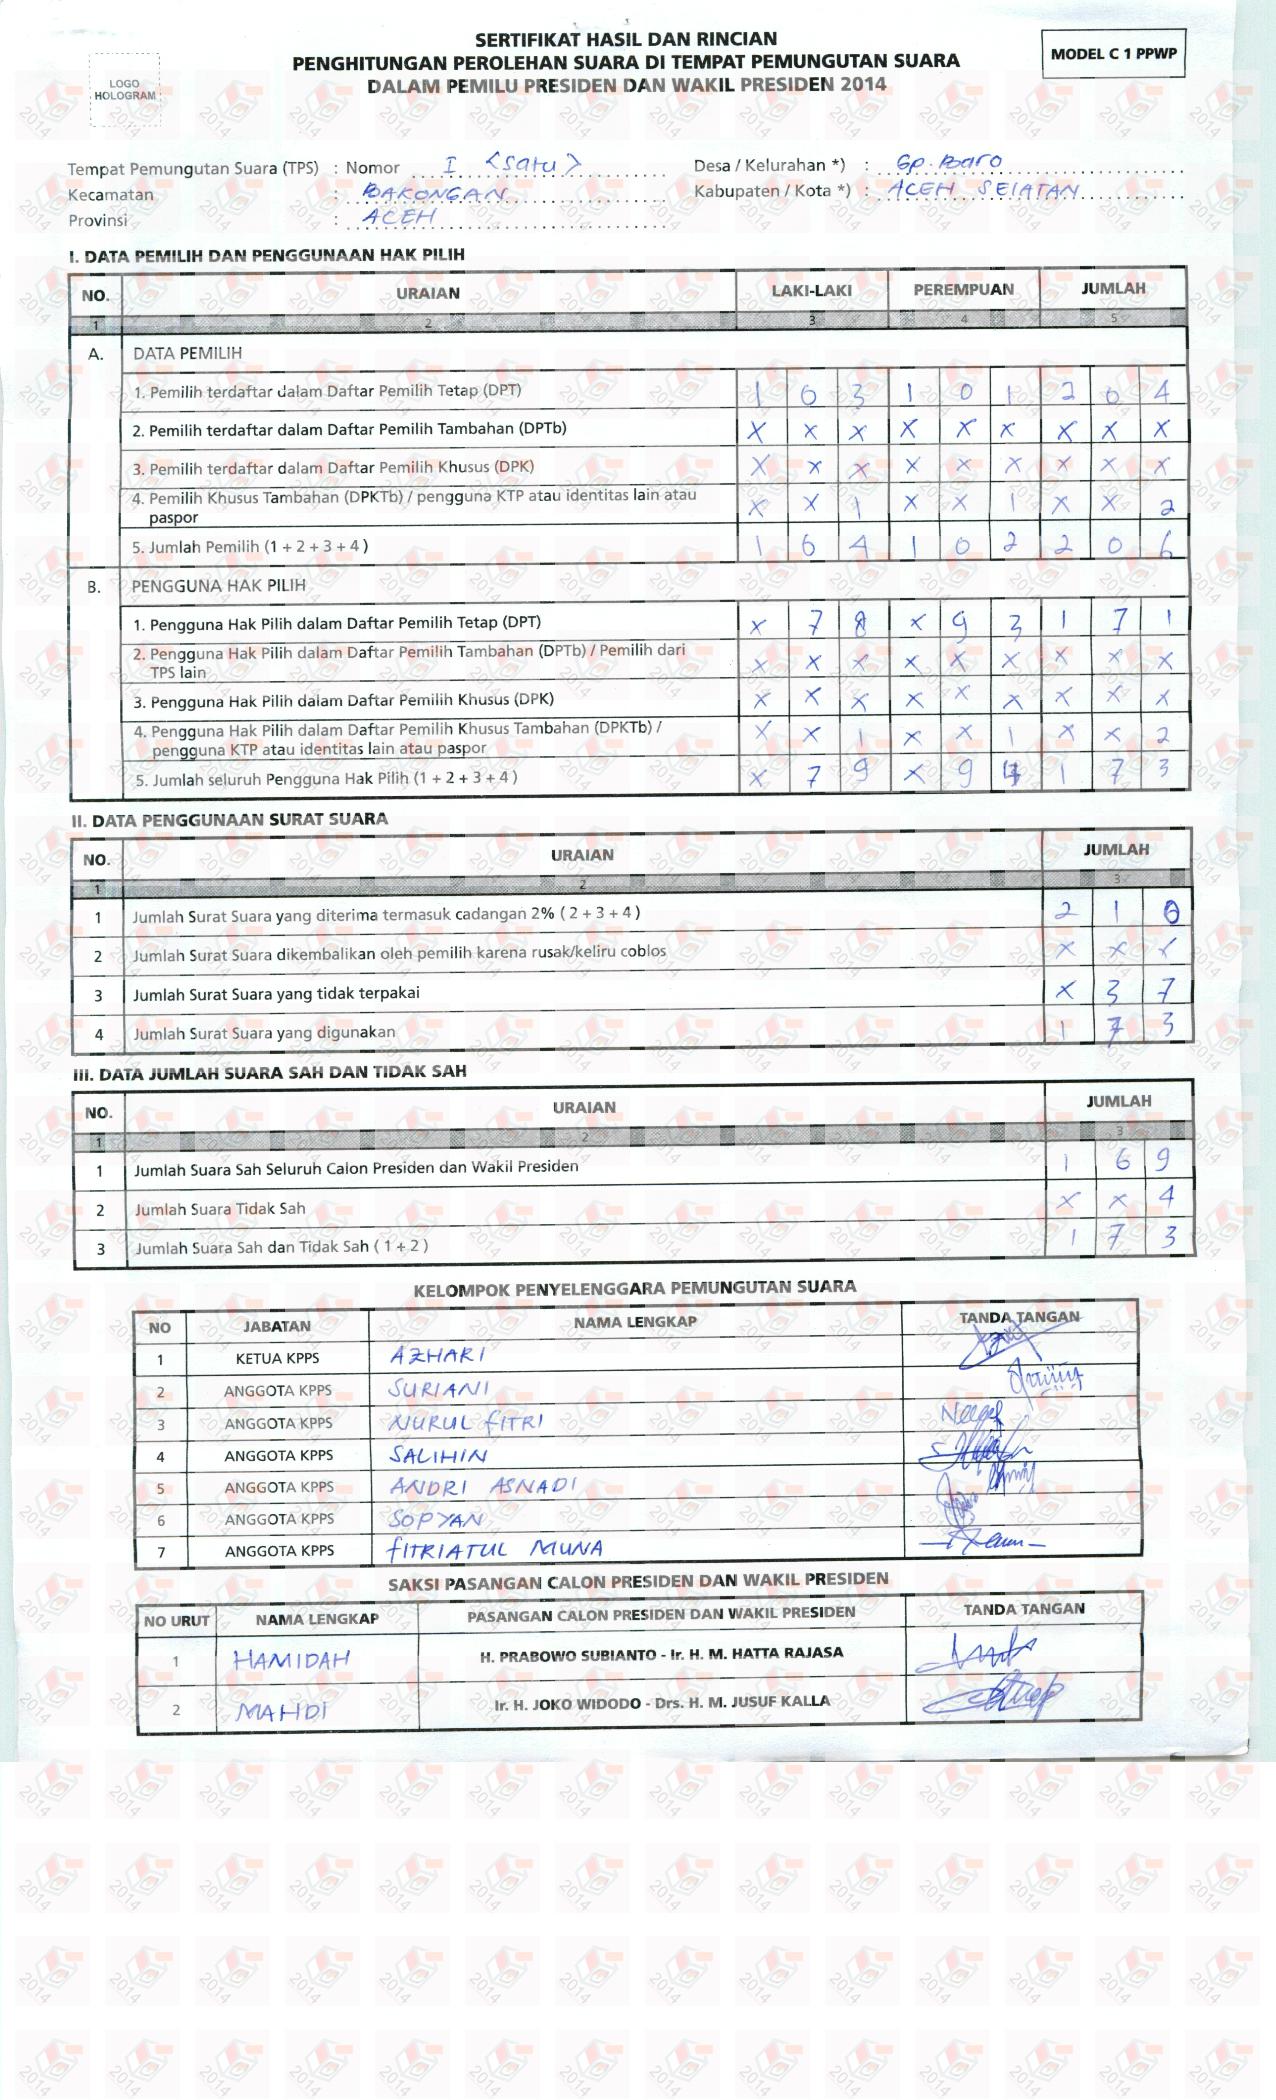 SERTIFIKAT HASIL DAN RINCIAN
PENGHITUNGAN PEROLEHAN SUARA DI TEMPAT PEMUNGUTAN SUARA
DALAM PEMILU PRESIDEN DAN WAKIL PRESIDEN 2014
MODEL C 1 PPWP
LOGO
HOLOGRAM
Tempat Pemungutan Suara (TPS) : Nomor I <Satu> Desa / Kelurahan *) : Gp. Baro
Kecamatan : BAKONGAN Kabupaten / Kota *) : ACEH SELATAN
Provinsi : ACEH
I. DATA PEMILIH DAN PENGGUNAAN HAK PILIH
NO. URAIAN LAKI-LAKI PEREMPUAN JUMLAH
1 2 3 4 5
A. DATA PEMILIH
1. Pemilih terdaftar dalam Daftar Pemilih Tetap (DPT) 1 0 3 1 0 1 2 0 4
2. Pemilih terdaftar dalam Daftar Pemilih Tambahan (DPTb) X X X X X X X X X
3. Pemilih terdaftar dalam Daftar Pemilih Khusus (DPK) X X X X X X X X X
4. Pemilih Khusus Tambahan (DPKTb) / pengguna KTP atau identitas lain atau
paspor X X 1 X X 1 X X 2
5. Jumlah Pemilih (1 + 2 + 3 + 4 ) 1 0 4 1 0 2 2 0 6
B. PENGGUNA HAK PILIH
1. Pengguna Hak Pilih dalam Daftar Pemilih Tetap (DPT) X 7 8 X 9 3 1 7 1
2. Pengguna Hak Pilih dalam Daftar Pemilih Tambahan (DPTb) / Pemilih dari
TPS lain X X X X X X X X X
3. Pengguna Hak Pilih dalam Daftar Pemilih Khusus (DPK) X X X X X X X X X
4. Pengguna Hak Pilih dalam Daftar Pemilih Khusus Tambahan (DPKTb) /
pengguna KTP atau identitas lain atau paspor X X 1 X X 1 X X 2
5. Jumlah seluruh Pengguna Hak Pilih (1 + 2 + 3 + 4 ) X 7 9 X 9 4 1 7 3
II. DATA PENGGUNAAN SURAT SUARA
NO. URAIAN JUMLAH
1 2 3
1 Jumlah Surat Suara yang diterima termasuk cadangan 2% ( 2 + 3 + 4 ) 2 1 0
2 Jumlah Surat Suara dikembalikan oleh pemilih karena rusak/keliru coblos X X X
3 Jumlah Surat Suara yang tidak terpakai X 3 7
4 Jumlah Surat Suara yang digunakan 1 7 3
III. DATA JUMLAH SUARA SAH DAN TIDAK SAH
NO. URAIAN JUMLAH
1 2 3
1 Jumlah Suara Sah Seluruh Calon Presiden dan Wakil Presiden 1 6 9
2 Jumlah Suara Tidak Sah X X 4
3 Jumlah Suara Sah dan Tidak Sah ( 1 + 2 ) 1 7 3
KELOMPOK PENYELENGGARA PEMUNGUTAN SUARA
NO JABATAN NAMA LENGKAP TANDA TANGAN
1 KETUA KPPS AZHARI
2 ANGGOTA KPPS SURIANI
3 ANGGOTA KPPS NURUL FITRI
4 ANGGOTA KPPS SALIHIN
5 ANGGOTA KPPS ANDRI ASNADI
6 ANGGOTA KPPS SOPYAN
7 ANGGOTA KPPS FITRIATUL MUNA
SAKSI PASANGAN CALON PRESIDEN DAN WAKIL PRESIDEN
NO URUT NAMA LENGKAP PASANGAN CALON PRESIDEN DAN WAKIL PRESIDEN TANDA TANGAN
1 HAMIDAH H. PRABOWO SUBIANTO - Ir. H. M. HATTA RAJASA
2 MAHDI Ir. H. JOKO WIDODO - Drs. H. M. JUSUF KALLA